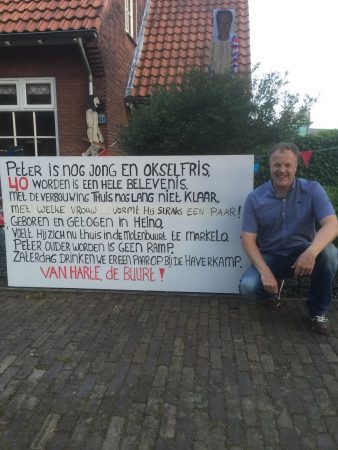 PETER IS NOG JONG EN OKSELFRIS,
40 WORDEN IS EEN HELE BELEVENIS.
MET DE VERBOUWING THUIS NOG LANG NIET KLAAR,
MET WELKE VROUW.... VORMT HIJ STRAKS EEN PAAR!
GEBOREN EN GETOGEN IN HEINO,
VOELT HIJ ZICH NU THUIS IN DE MOLENBUURT te MARKELO.
PETER OUDER WORDEN IS GEEN RAMP,
ZATERDAG DRINKEN WE ER EEN PAAR OP BIJ DE HAVERKAMP.
VAN HARTE, de BUURT!